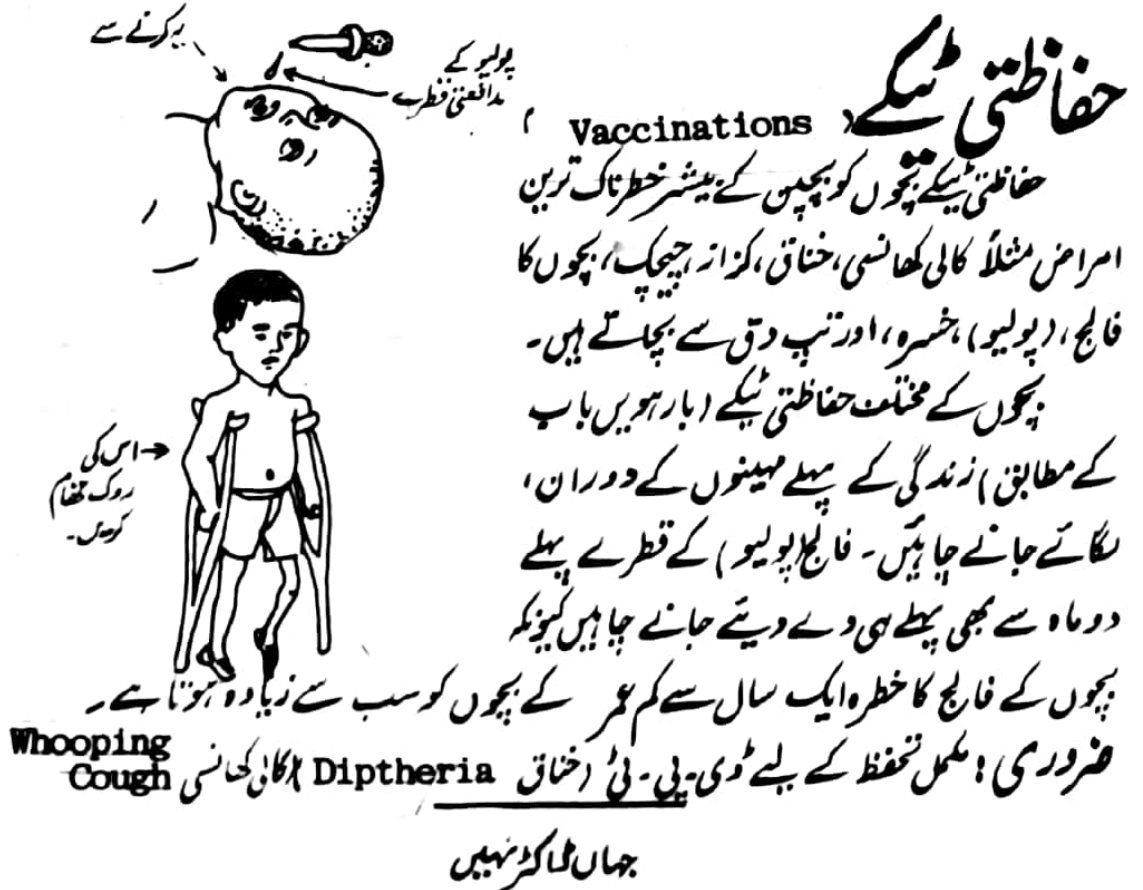 حفاظتی ٹیکے ( Vaccinations )
یہ کرنے سے
پولیو کے
مدافعتی قطرے
حفاظتی ٹیکے بچوں کو بچپن کے بیشتر خطرناک ترین
امراض مثلاً کالی کھانسی، خناق، کزاز، چیچک، بچوں کا
فالج، (پولیو)، خسرہ، اور تپ دق سے بچاتے ہیں۔
بچوں کے مختلف حفاظتی ٹیکے (بارھویں باب
کے مطابق) زندگی کے پہلے مہینوں کے دوران،
لگائے جانے چاہئیں۔ فالج (پولیو) کے قطرے پہلے
دو ماہ سے بھی پہلے ہی دے دیئے جانے چاہیں کیونکہ
بچوں کے فالج کا خطرہ ایک سال سے کم عمر کے بچوں کو سب سے زیادہ ہوتا ہے۔
اس کی
روک تھام
کریں۔
ضروری: مکمل تحفظ کے لیے ڈی۔پی۔ٹی (خناق Diptheria )(کالی کھانسی Whooping Cough
جہاں ڈاکٹر نہیں